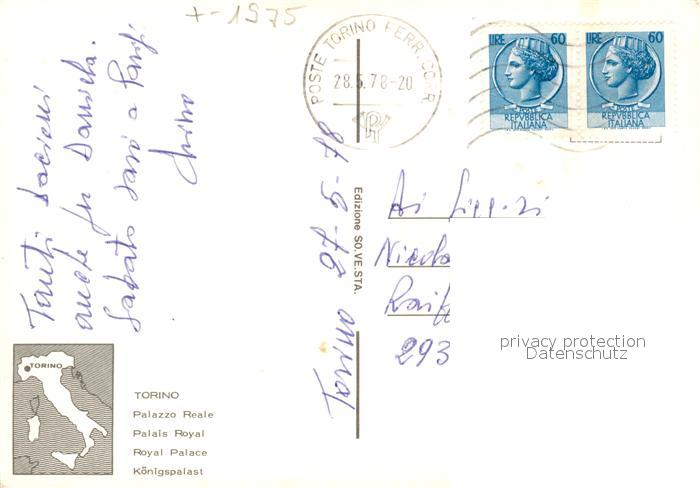 +-1975
POSTE TORINO FERR. CORR.
28.5.78-20
LIRE 60
POSTE
REPVBBLICA
ITALIANA
LIRE 60
POSTE
REPVBBLICA
ITALIANA
Tanti bacioni
anche per Daniela.
Sabato sarò a
Torino
Edizione SO.VE.STA.
Ai
Nicola
293
privacy protection
Datenschutz
TORINO
TORINO
Palazzo Reale
Palais Royal
Royal Palace
Königspalast